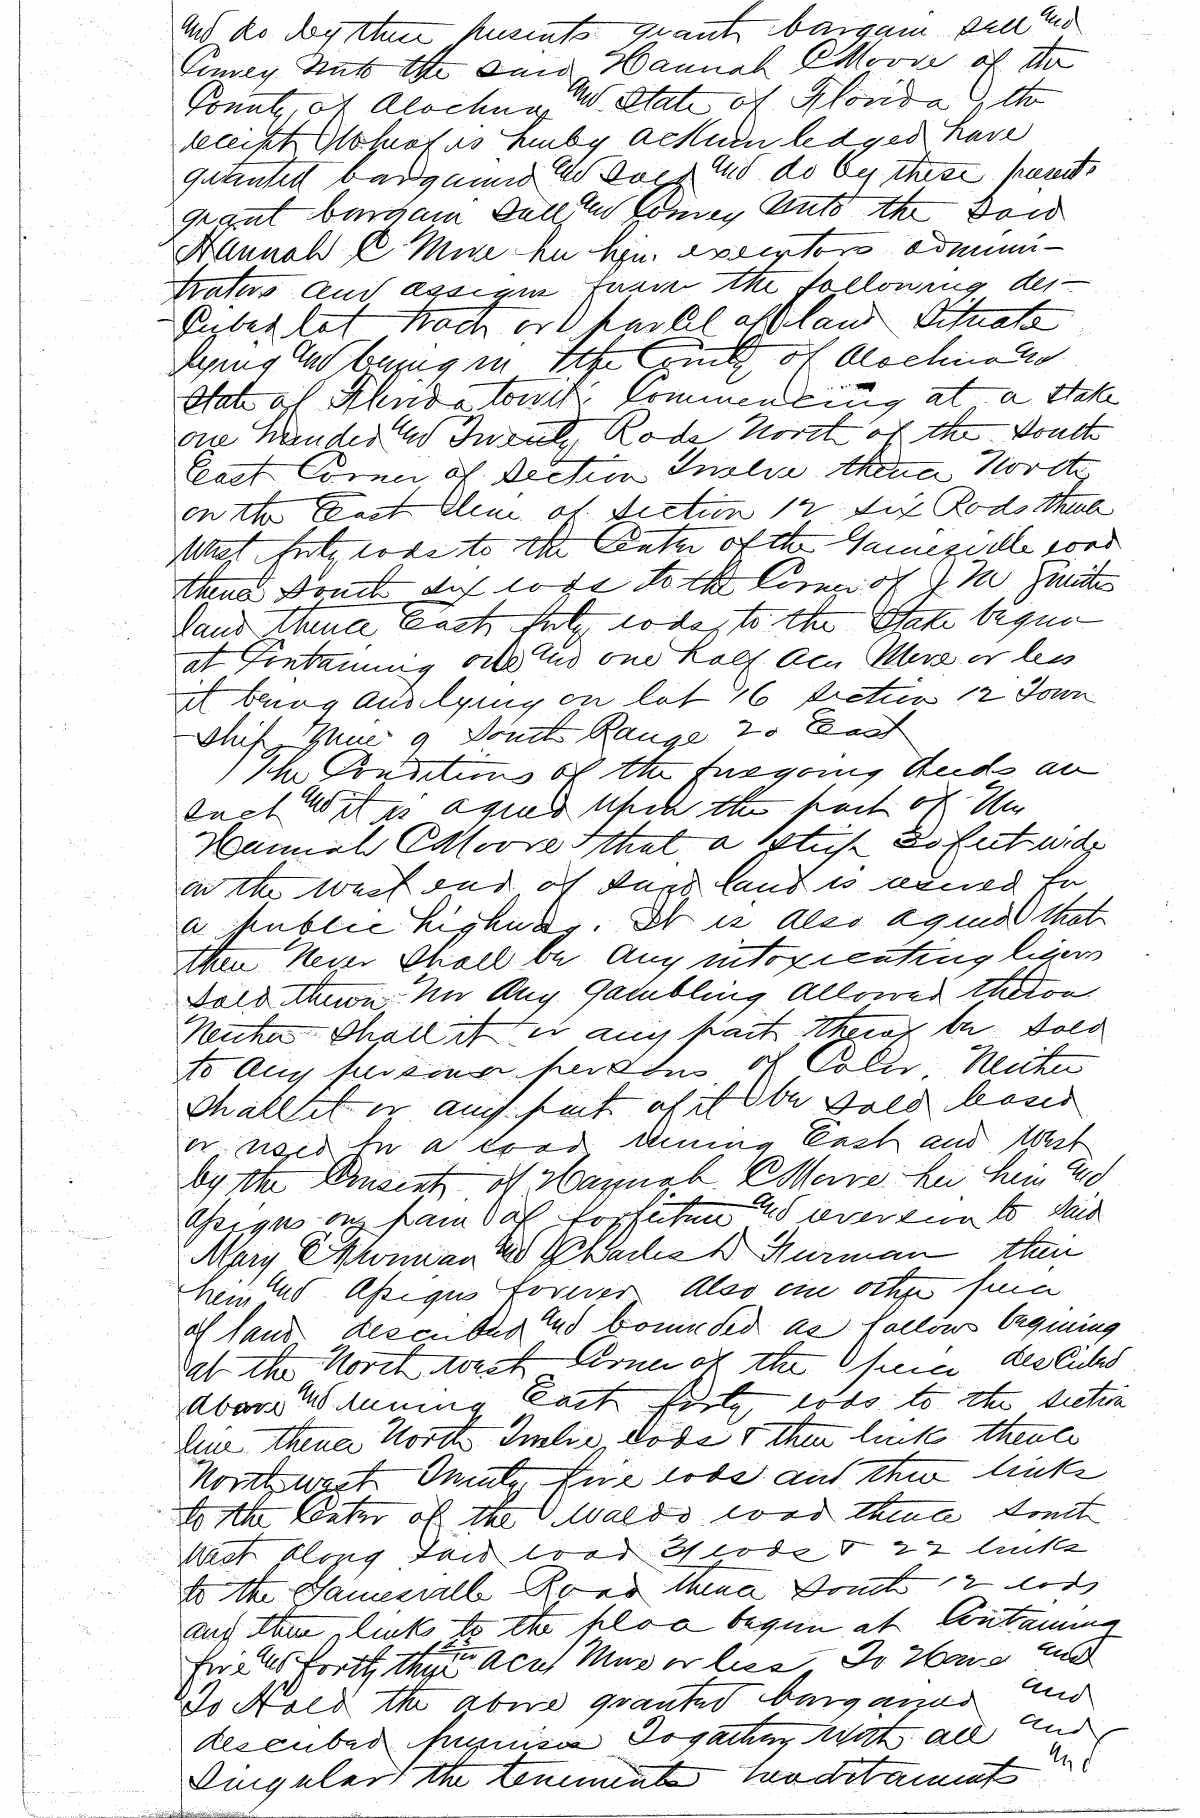 and do by these presents grant bargain sell and
Convey Unto the said Hannah C Moore of the
County of Alachua and State of Florida the
receipt Whereof is hereby acknowledged have
granted bargained and sold and do by these presents
grant bargain sell and Convey Unto the said
Hannah C Moore her heirs executors adminis-
trators and assigns forever the following des-
cribed lot tract or parcel of land Situate
lying and being in the County of Alachua and
State of Florida towit: Commencing at a stake
one hundred and Twenty Rods North of the South
East Corner of Section Twelve thence North
on the East line of section 12 six Rods thence
West forty rods to the Center of the Gainesville road
thence South six rods to the Corner of J M Smiths
land thence East forty rods to the Stake begun
at Containing one and one half acre More or less
it being and lying on lot 16 section 12 Town
ship Nine 9 South Range 20 East
The Conditions of the foregoing deeds are
such and it is agreed upon the part of
Hannah C Moore that a strip 30 feet wide
on the west end of said land is reserved for
a public highway. It is also agreed that
there Never shall be any intoxicating liqors
sold theron Nor any gambling allowed theron
Neither shall it or any part therof be sold
to any person or persons of Color Neither
shall it or any part of it be sold leased
or used for a road runing East and West
by the Consent of Hannah C Moore her heirs and
assigns on pain of forfeiture and reversion to said
Mary E Thurman and Charles L Thurman their
heirs and assigns forever Also one other piece
of land described and bounded as follows begining
at the North west Corner of the piece described
above and runing East forty rods to the section
line thence North Twelve rods & three links thence
North west Twenty five rods and three links
to the Center of the Waldo road thence South
West along said road 31 rods & 22 links
to the Gainesville Road thence South 12 rods
and three links to the place begun at Containing
five and forty three acres More or less To Have and
To Hold the above granted bargained and
described premises Together with all and
singular the tenements hereditaments and